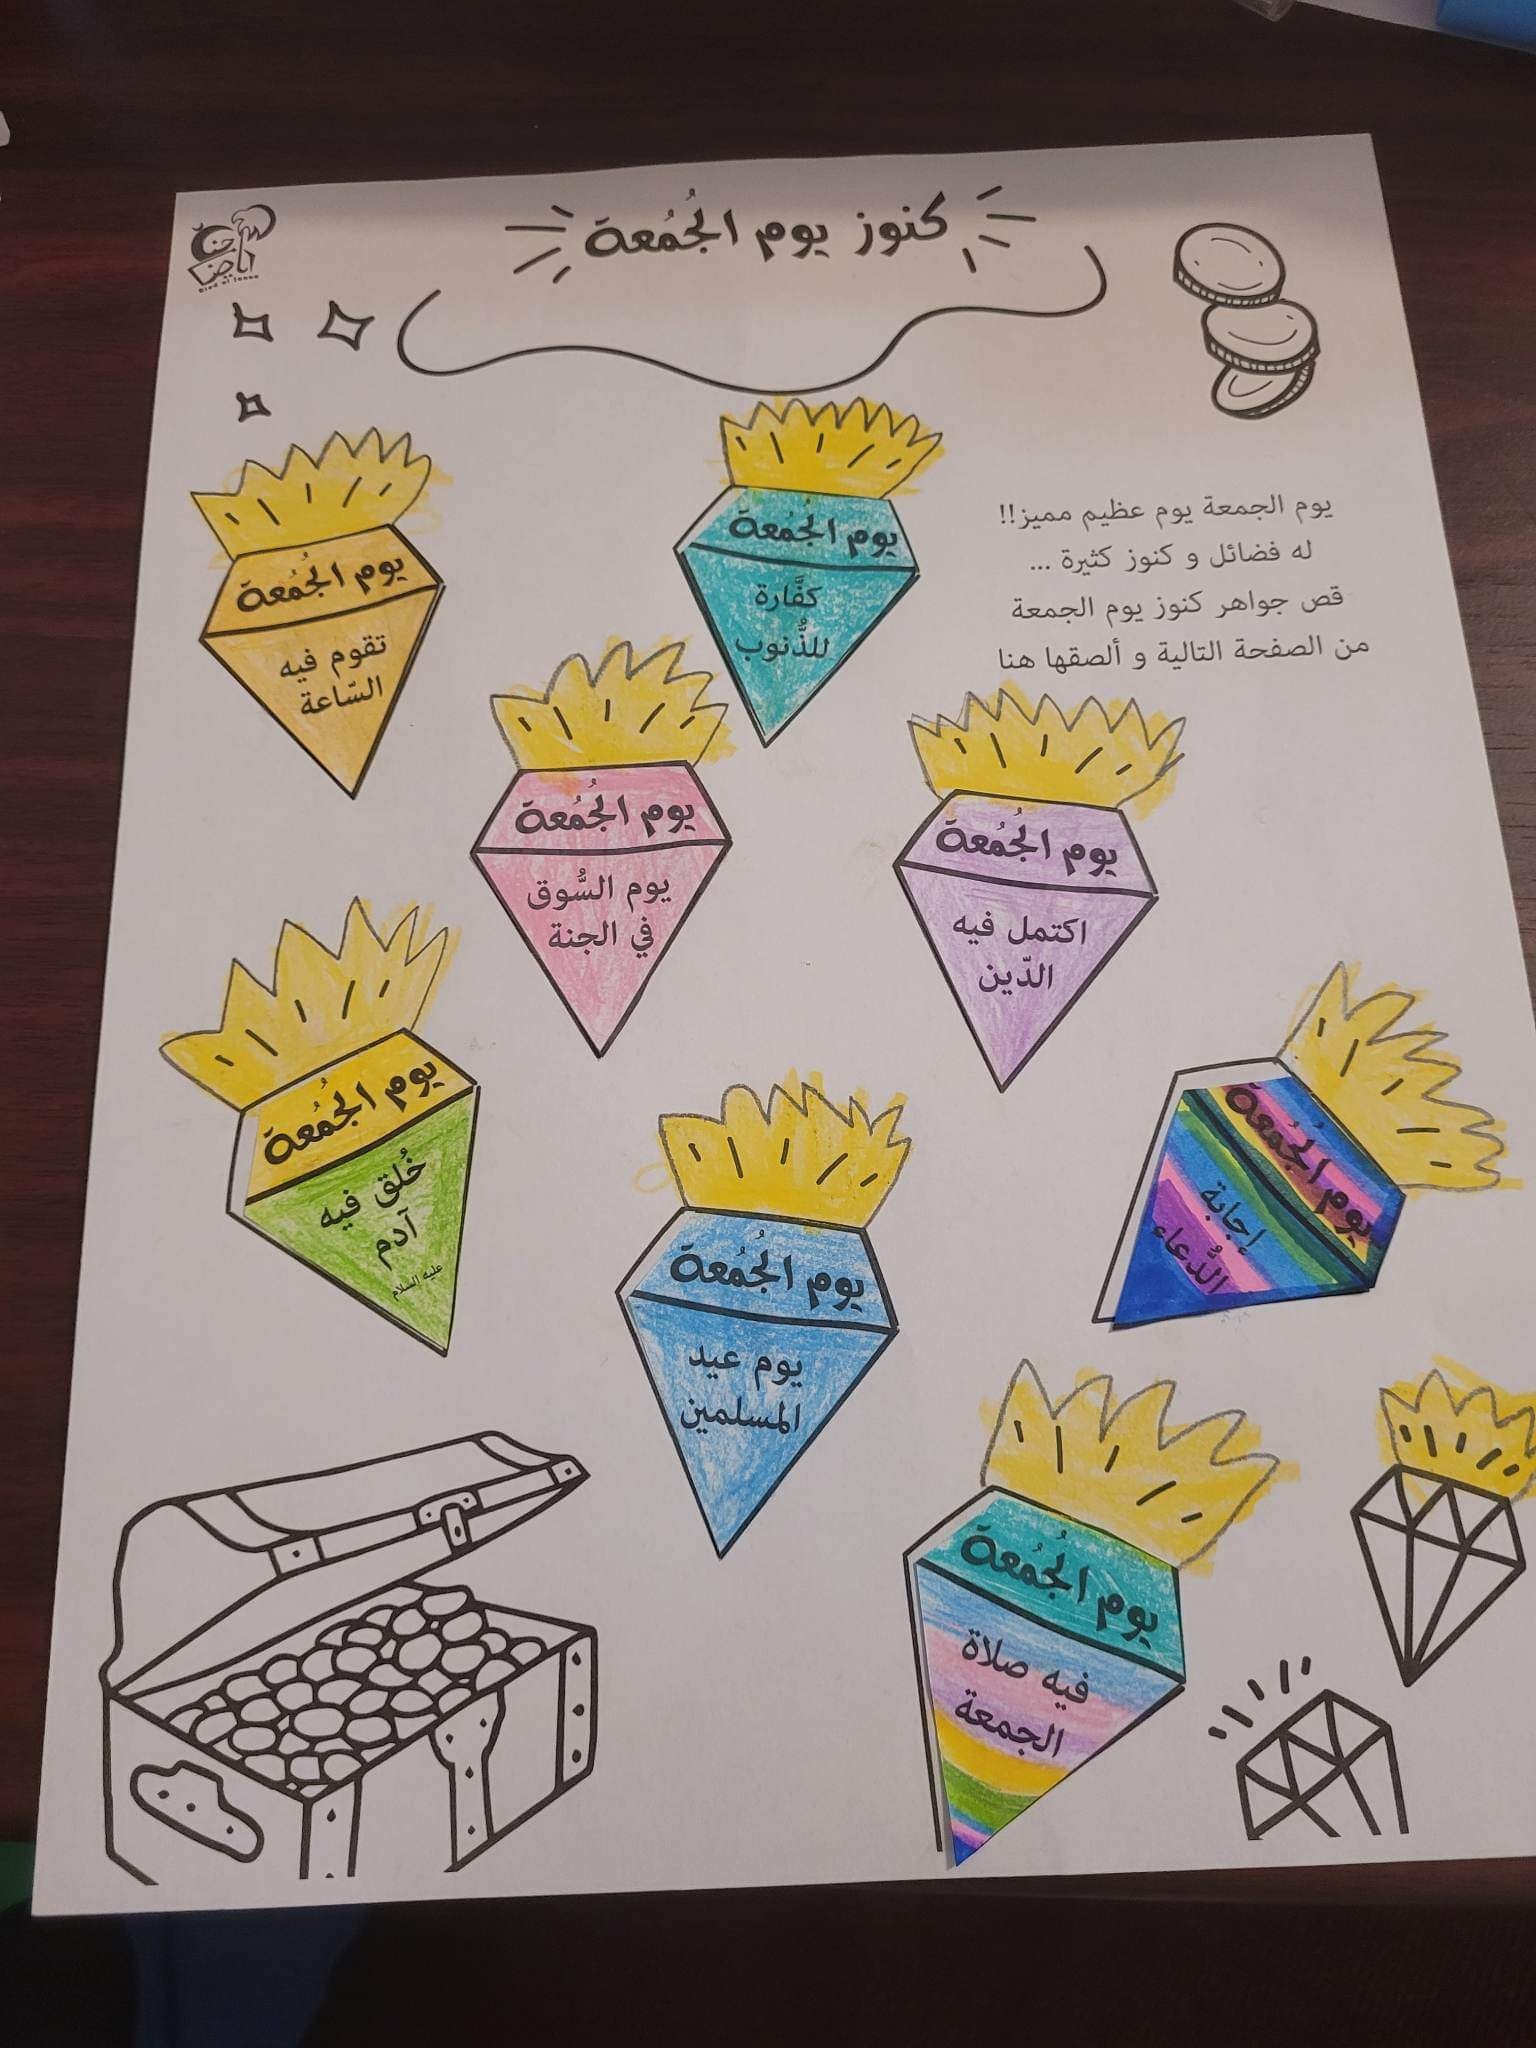 كنوز يوم الجُمُعة
يوم الجمعة يوم عظيم مميز!!
له فضائل و كنوز كثيرة ...
قص جواهر كنوز يوم الجمعة
من الصفحة التالية و ألصقها هنا
يوم الجُمُعة
كفَّارة
للذُّنوب
يوم الجُمُعة
تقوم فيه
السّاعة
يوم الجُمُعة
اكتمل فيه
الدّين
يوم الجُمُعة
يوم السُّوق
في الجنة
يوم الجُمُعة
إجابة
الدُّعاء
يوم الجُمُعة
يوم عيد
المسلمين
يوم الجُمُعة
خُلق فيه
آدم
عليه السلام
يوم الجُمُعة
فيه صلاة
الجمعة